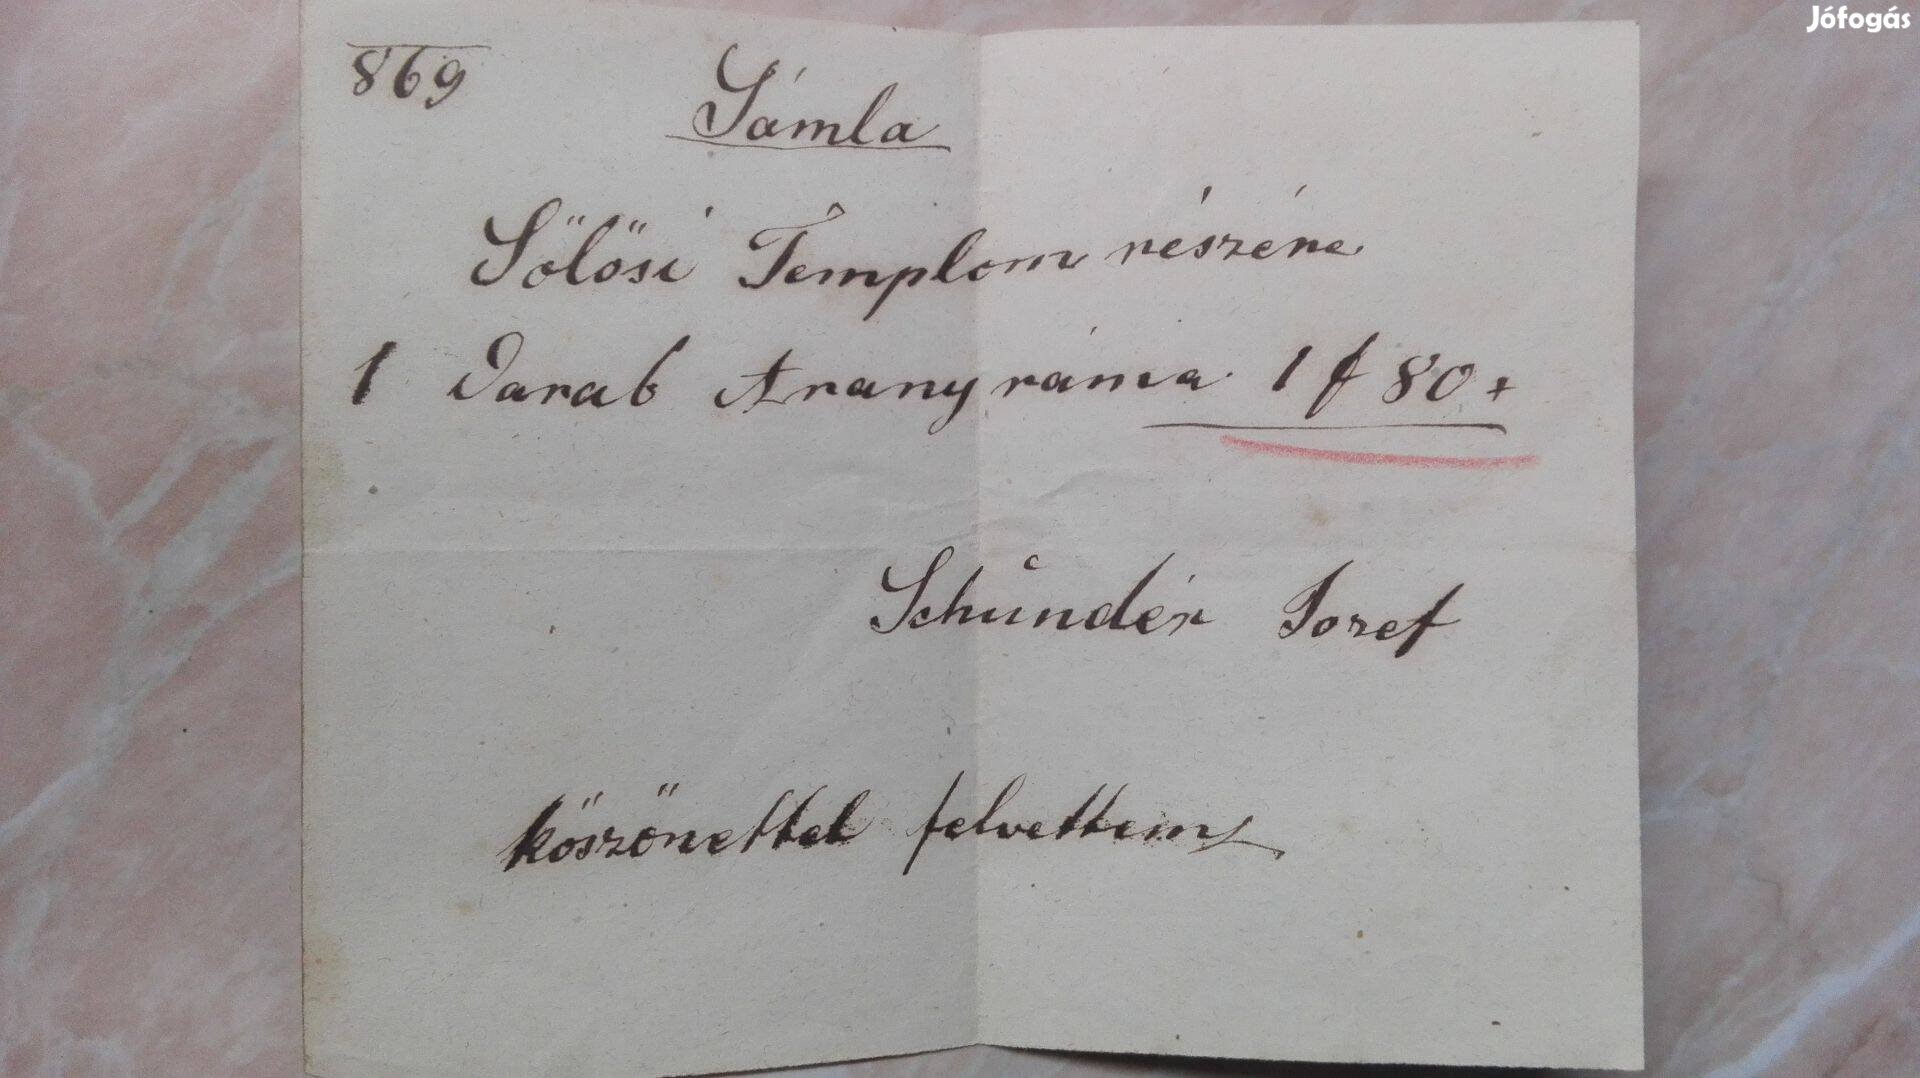 Jófogás
869
Sámla
Sőlősi Templom részére
1 Darab Arany ráma 1 f 80 x
Schünder Josef
köszönettel felvettem